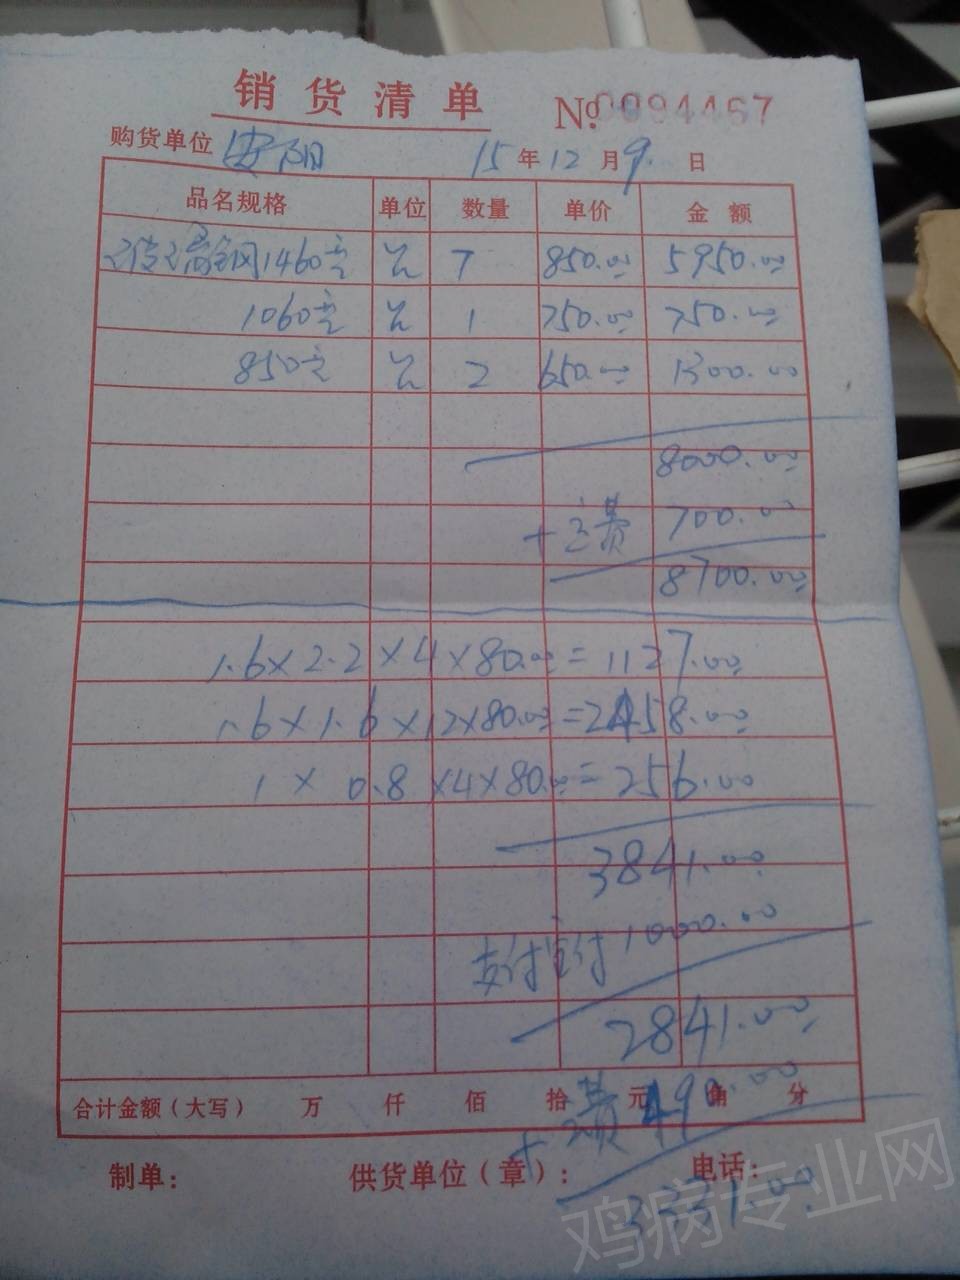 销货清单 №0094467
购货单位 安阳 15年12月9.日
品名规格 单位 数量 单价 金额
1460 7 850.00 5950.00
1060 1 750.00 750.00
850 2 650.00 1300.00
8000.00
+运费 700.00
8700.00
1.6×2.2×4×80.00=1127.00
1.6×1.6×12×80.00=2458.00
1×0.8×4×80.00=256.00
3841.00
支付宝付1000.00
2841.00
合计金额（大写） 万 仟 佰 拾 元 角 分
+运费490.00
制单： 供货单位（章）： 电话：
3331.00
鸡病专业网